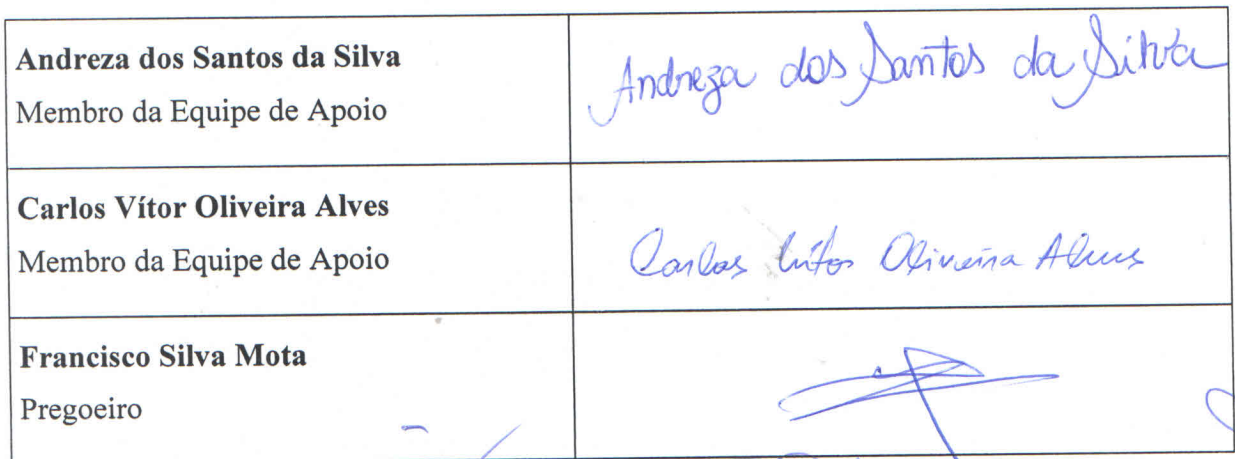 Andreza dos Santos da Silva
Membro da Equipe de Apoio
Andreza dos Santos da Silva
Carlos Vítor Oliveira Alves
Membro da Equipe de Apoio
Carlos Vítor Oliveira Alves
Francisco Silva Mota
Pregoeiro